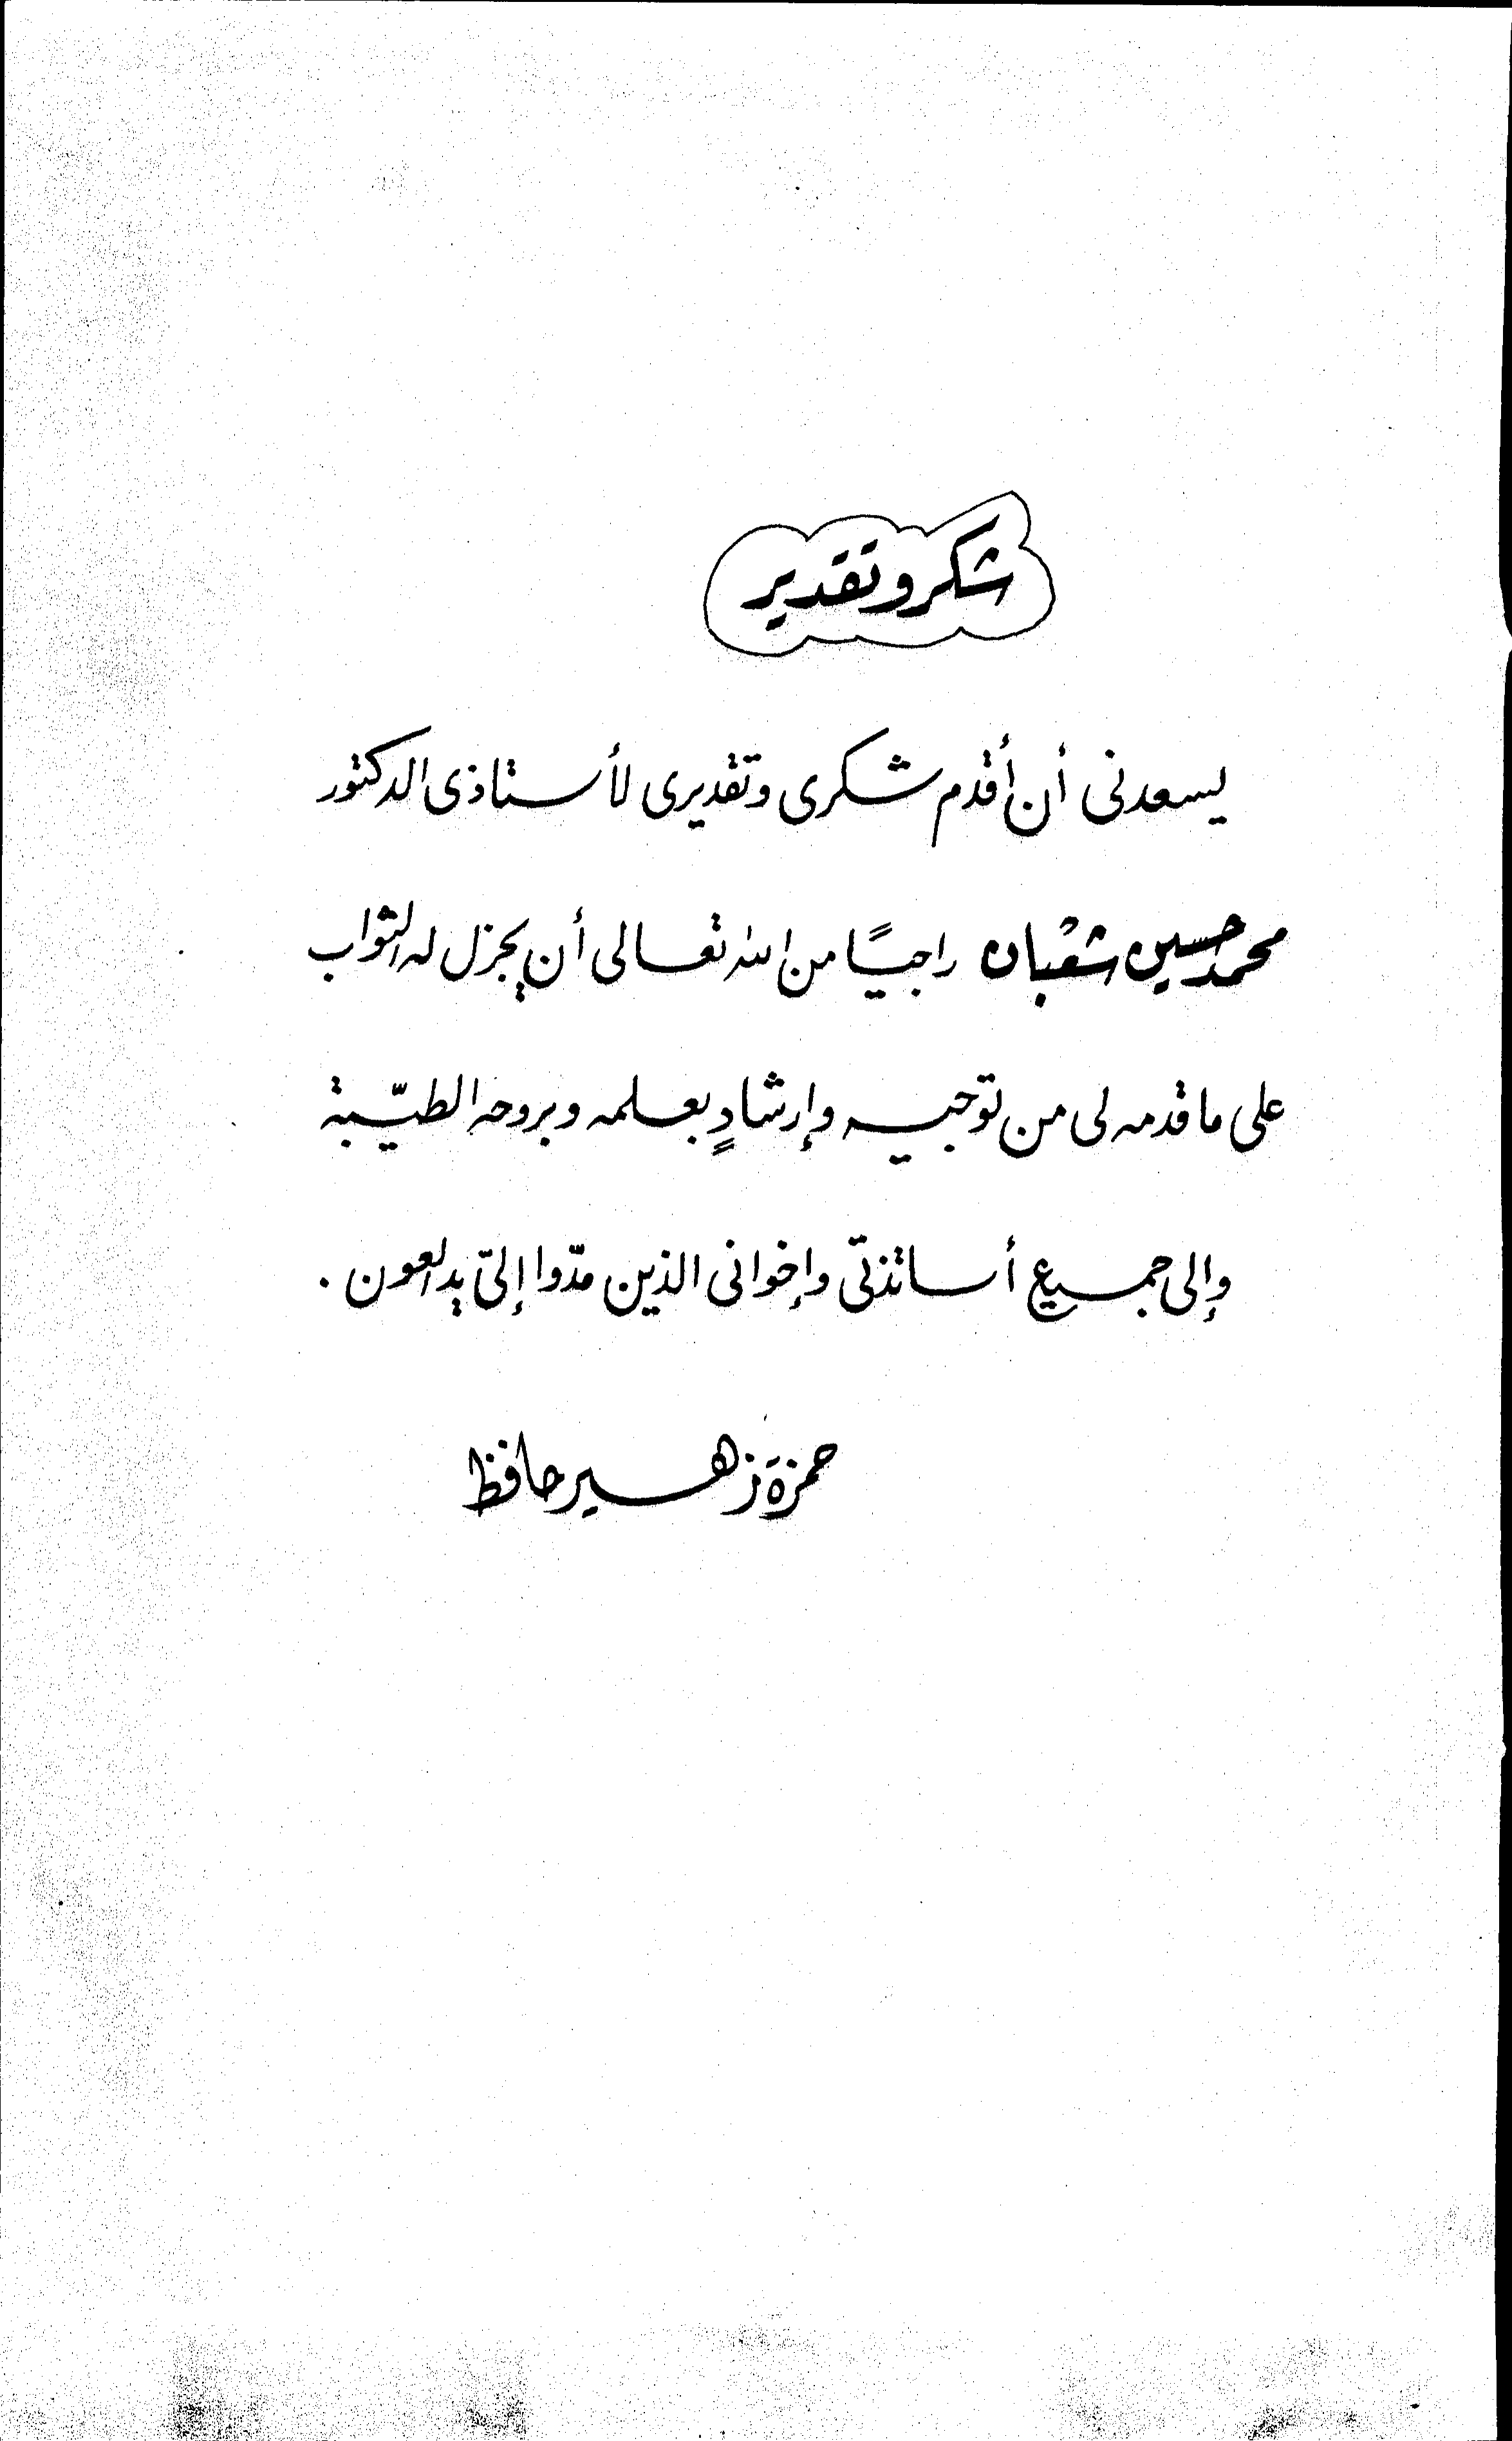 شكر وتقدير
يسعدنى أن أقدم شكرى وتقديرى لأستاذى الدكتور
محمد حسين شعبان راجيًا من الله تعالى أن يجزل له الثواب
على ما قدمه لى من توجيه وإرشادٍ بعلمه وبروحه الطيّبة
وإلى جميع أساتذتى وإخوانى الذين مدّوا إلىّ يد العون .
حمزة زهير حافظ